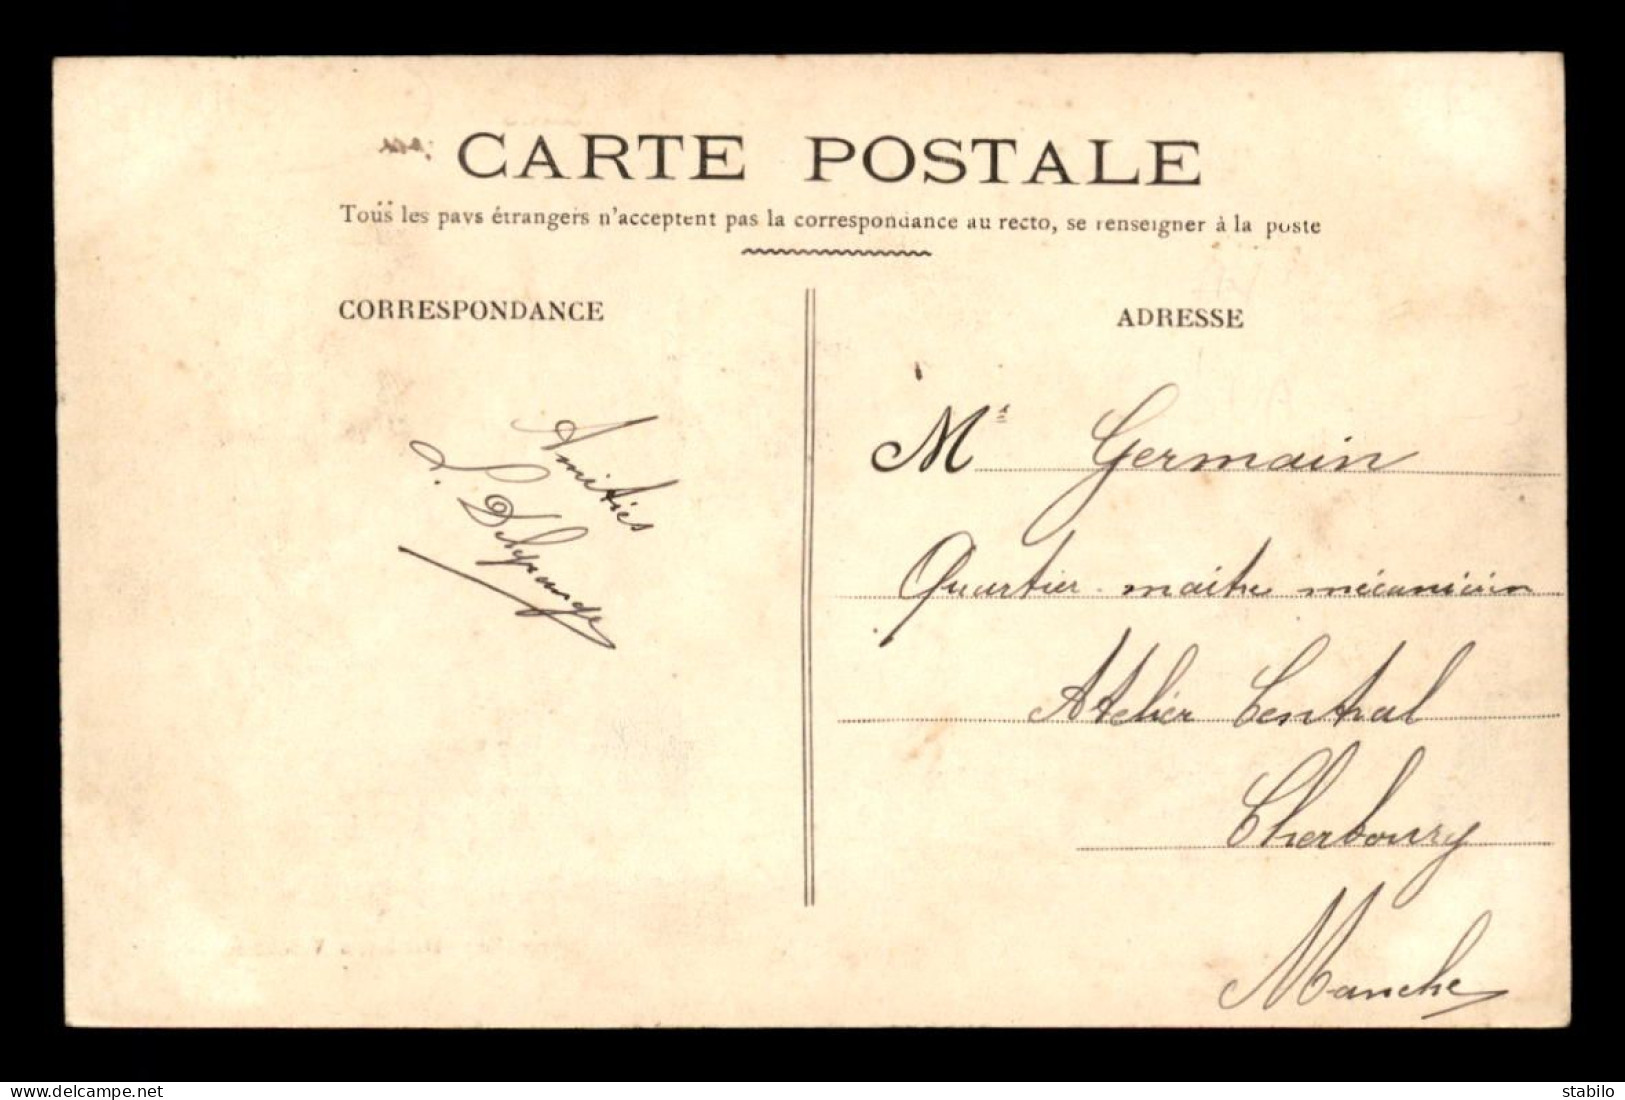 CARTE POSTALE
Tous les pays étrangers n'acceptent pas la correspondance au recto, se renseigner à la poste
CORRESPONDANCE
Amitiés
ADRESSE
Mr Germain
Quartier-maitre mécanicien
Atelier Central
Cherbourg
Manche
delcampe.net
stabilo